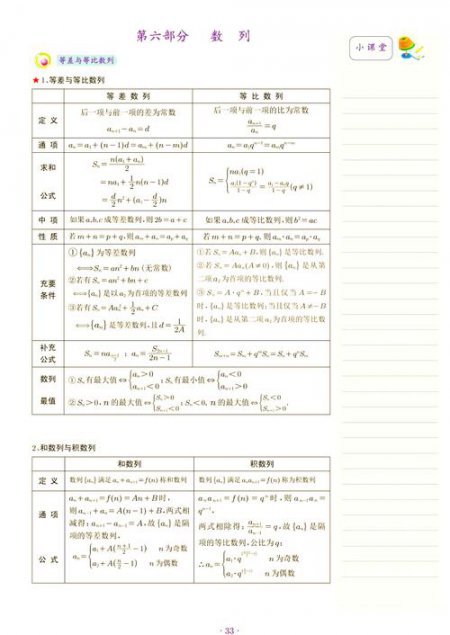 第六部分 数 列
小课堂
等差与等比数列
★1.等差与等比数列
等 差 数 列 等 比 数 列
定 义 后一项与前一项的差为常数 后一项与前一项的比为常数
aₙ₊₁-aₙ=d aₙ₊₁/aₙ=q
通 项 aₙ=a₁+(n-1)d=aₘ+(n-m)d aₙ=a₁qⁿ⁻¹=aₘqⁿ⁻ᵐ
求和
公式
Sₙ=n(a₁+aₙ)/2
=na₁+1/2n(n-1)d
=d/2n²+(a₁-d/2)n
Sₙ={na₁(q=1)
a₁(1-qⁿ)/1-q=a₁-aₙq/1-q(q≠1)
中 项 如果a,b,c成等差数列,则2b=a+c 如果a,b,c成等比数列,则b²=ac
性 质 若m+n=p+q,则aₘ+aₙ=aₚ+a_q 若m+n=p+q,则aₘ·aₙ=aₚ·a_q
充要
条件
①{aₙ}为等差数列
⟺Sₙ=an²+bn(无常数)
②若有Sₙ=an²+bn+c
⟺{aₙ}是以a₂为首项的等差数列
⟺{aₙ}是等差数列,且d=1/2A
①若Sₙ=Aaₙ+B,则{aₙ}是等比数列.
②若Sₙ=Aaₙ(A≠0),则{aₙ}是从第
二项a₂为首项的等比数列.
③Sₙ=A·qⁿ+B,当且仅当A=-B
时,{aₙ}是等比数列;当且仅当A≠-B
时,{aₙ}是从第二项a₂为首项的等比数
列.
补充
公式
aₙ=S₂ₙ₋₁/2n-1
Sₘ₊ₙ=Sₙ+qⁿSₘ=Sₘ+qᵐSₙ
数列
最值
①Sₙ有最大值⇔{aₙ>0 aₙ₊₁<0;Sₙ有最小值⇔{aₙ<0 aₙ₊₁>0
②Sₙ>0,n的最大值⇔{Sₙ>0 Sₙ₊₁<0;Sₙ<0,n的最大值⇔{Sₙ<0 Sₙ₊₁>0.
2.和数列与积数列
和数列 积数列
定 义 数列{aₙ}满足aₙ+aₙ₊₁=f(n)称和数列 数列{aₙ}满足aₙaₙ₊₁=f(n)称为积数列
通 项
公 式
aₙ+aₙ₊₁=f(n)=An+B时,
则aₙ₋₁+aₙ=A(n-1)+B,两式相
减得:aₙ₊₁-aₙ₋₁=A,故{aₙ}是隔
项的等差数列,
aₙ={a₁+A(n+1/2-1) n为奇数
a₂+A(n/2-1) n为偶数
aₙaₙ₊₁=f(n)=qⁿ时,则aₙ₋₁aₙ=
qⁿ⁻¹,
两式相除得:aₙ₊₁/aₙ₋₁=q,故{aₙ}是隔
项的等比数列,公比为q:
n为奇数
n为偶数
·33·